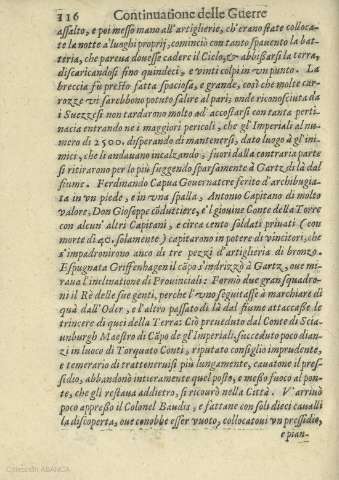 116 Continuatione delle Guerre
assalto, e poi messo mano all'artiglierie, ch'erano state colloca-
te la notte a'luoghi proprij, cominciò con tanto spauento la bat-
teria, che pareua douesse cadere il Cielo, & abissarsi la terra,
discaricandosi fino quindeci, e vinti colpi in vn punto. La
breccia fù presto fatta spaciosa, e grande, così che molte car-
rozze vi sarebbono potuto salire al pari; onde riconosciuta da
i Suezzesi non tardarono molto ad accostarsi con tanta perti-
nacia entrando ne i maggiori pericoli, che gl'Imperiali al nu-
mero di 2500. disperando di mantenersi, dato luogo à gl'ini-
mici, che li andauano incalzando, fuori dalla contraria parte
si ritirarono per lo più fuggendo sparsamente à Gartz di là dal
fiume. Ferdinando Capua Gouernatore ferito d'archibugia-
ta in vn piede, e in vna spalla, Antonio Capitano di molto
valore, Don Gioseppe cōduttiere, e'l giouine Conte della Torre
con alcun'altri Capitani, e circa cento soldati priuati (con
morte di 40. solamente) capitarono in potere di vincitori, che
s'impadronirono anco di tre pezzi d'artiglieria di bronzo.
Espugnata Griffenhagen il cāpo s'indrizzò à Gartz, oue mi-
raua l'inclinatione di Prouinciali: Formò due gran squadro-
ni il Rè delle sue genti, perche l'vno seguitasse à marchiare di
quà dall'Oder, e l'altro passato di là dal fiume attaccasse le
trincere di quei della Terra: Ciò preueduto dal Conte di Scia-
unburgh Maestro di Cāpo de gl'Imperiali, succeduto poco dian-
zi in luoco di Torquato Conti, riputato consiglio imprudente,
e temerario di trattenerui si più lungamente, cauatone il pre-
sidio, abbandonò intieramente quel posto, e messo fuoco al pon-
te, che gli restaua addietro, si ricourò nella Città. V'arriuò
poco appresso il Colonel Baudis, e fattane con soli dieci caualli
la discoperta, oue conobbe esser vuoto, collocatoui vn pressidio,
e pian-
Colección ABANCA